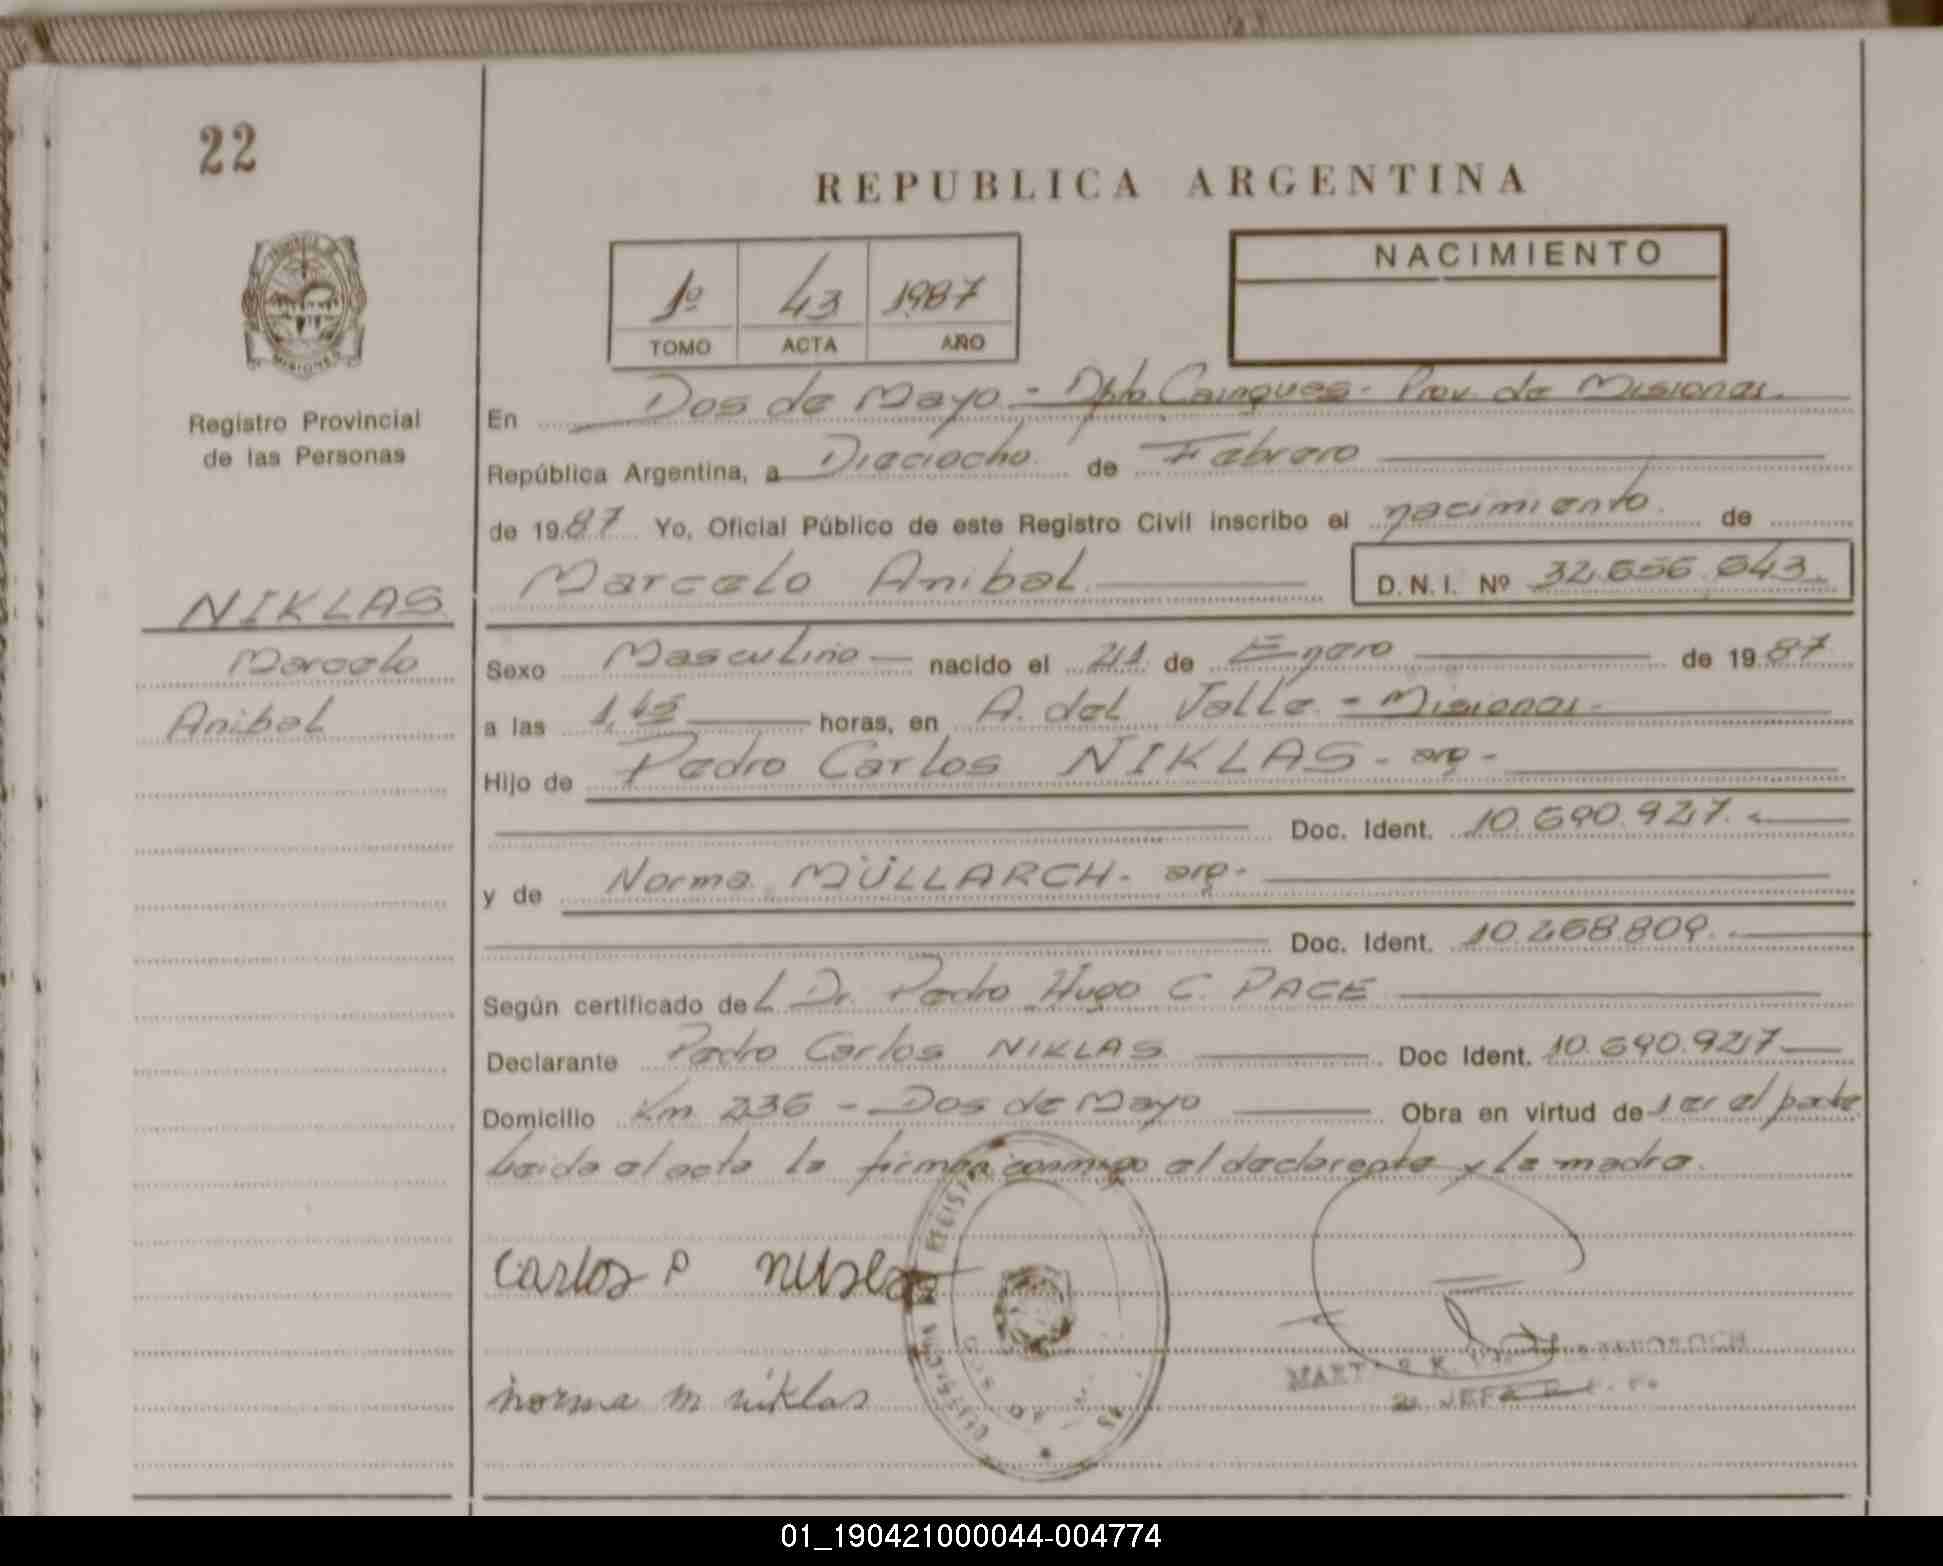 22
REPUBLICA ARGENTINA
1º 43 1987
TOMO ACTA AÑO
NACIMIENTO
MISIONES
Registro Provincial
de las Personas
NIKLAS
Marcelo
Anibal
En Dos de Mayo - Dpto. Cainguas - Prov. de Misiones.
República Argentina, a Dieciocho de Febrero
de 1987 Yo, Oficial Público de este Registro Civil inscribo el nacimiento de
Marcelo Anibal D.N.I. Nº 32.656.643.
Sexo Masculino nacido el de Enero de 1987
a las horas, en A. del Valle - Misiones.
Hijo de Pedro Carlos NIKLAS - arg -
Doc. Ident. 10.690.927.
y de Norma MÜLLARCH - arg -
Doc. Ident. 10.268.809.
Según certificado del Dr. Pedro Hugo C. PACE
Declarante Pedro Carlos NIKLAS Doc Ident. 10.690.927
Domicilio Km 236 - Dos de Mayo Obra en virtud de ser el padre
Leida el acta la firman conmigo el declarante y la madre.
Carlos P niklas
norma m niklas
01_190421000044-004774